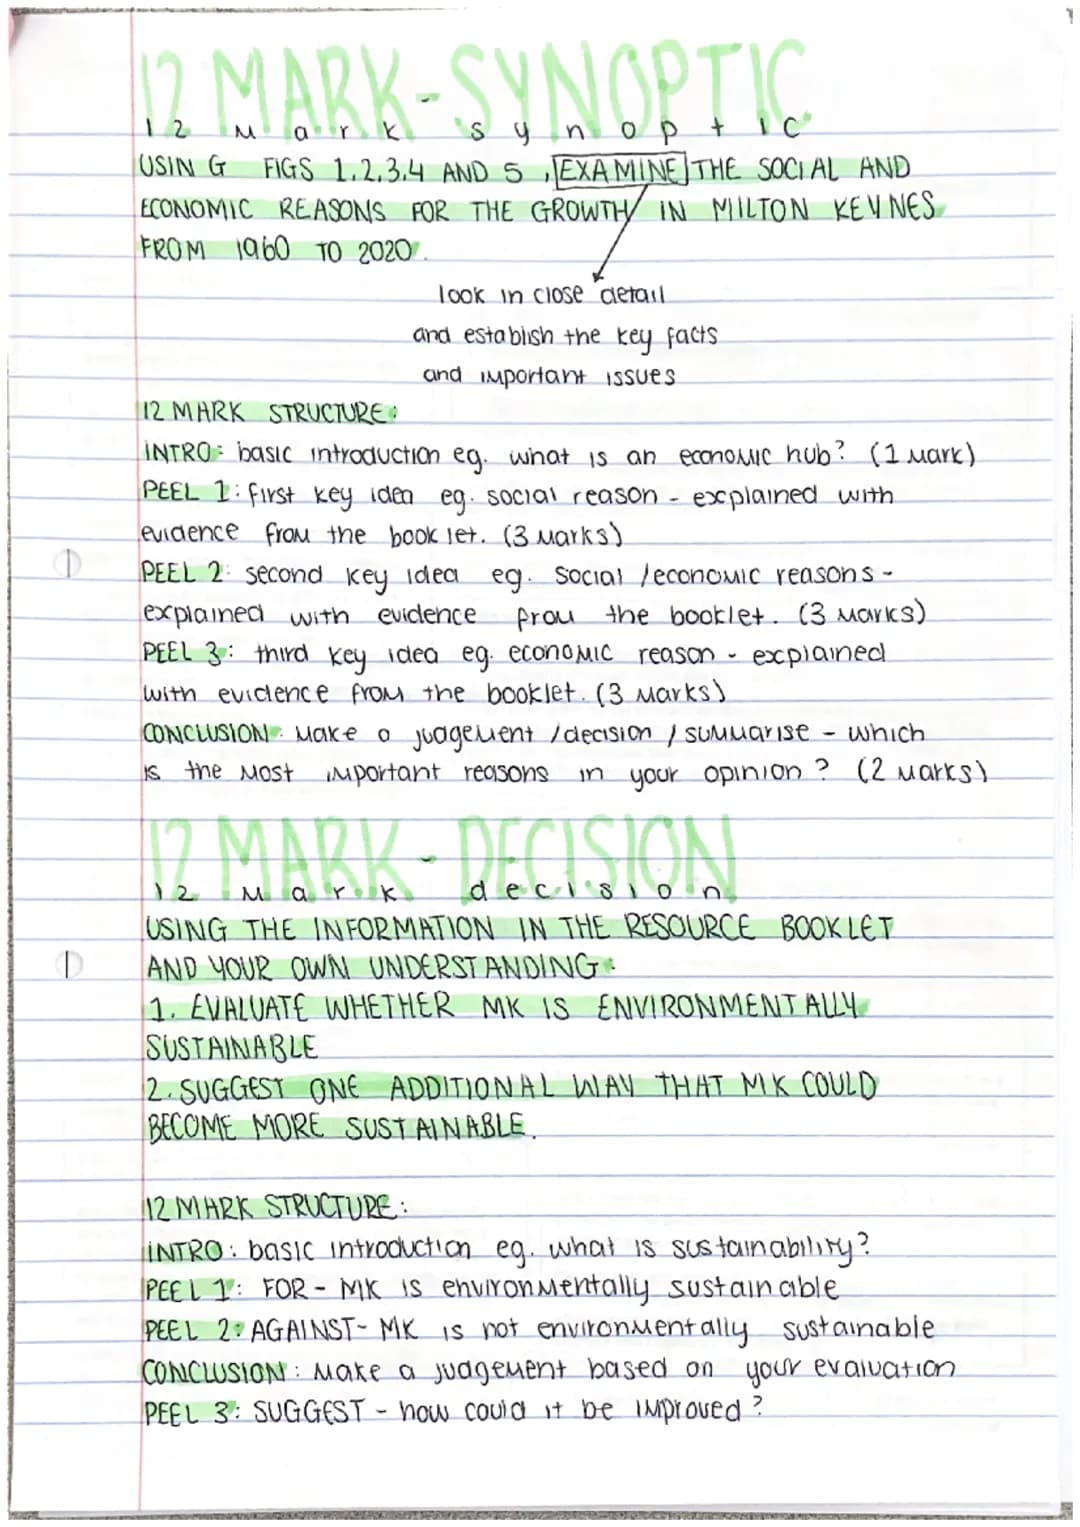 12 MARK-SYNOPTIC
12 Mark synoptic
USING FIGS 1,2,3,4 AND 5, EXAMINE THE SOCIAL AND
ECONOMIC REASONS FOR THE GROWTH IN MILTON KEYNES
FROM 1960 TO 2020.
look in close detail
and establish the key facts
and important issues
12 MARK STRUCTURE:
INTRO: basic introduction eg. what is an economic hub? (1 mark)
PEEL 1: first key idea eg. social reason - explained with
evidence from the booklet. (3 marks)
PEEL 2: second key idea eg. social/economic reasons -
explained with evidence from the booklet. (3 marks)
PEEL 3: third key idea eg. economic reason - explained
with evidence from the booklet. (3 marks)
CONCLUSION: Make a judgement/decision/summarise - which
is the most important reasons in your opinion? (2 marks)
12 MARK-DECISION
12 Mark decision
USING THE INFORMATION IN THE RESOURCE BOOKLET
AND YOUR OWN UNDERSTANDING:
1. EVALUATE WHETHER MK IS ENVIRONMENTALLY
SUSTAINABLE
2. SUGGEST ONE ADDITIONAL WAY THAT MK COULD
BECOME MORE SUSTAINABLE.
12 MARK STRUCTURE:
INTRO: basic introduction eg. what is sustainability?
PEEL 1: FOR - MK is environmentally sustainable
PEEL 2: AGAINST- MK is not environmentally sustainable
CONCLUSION: Make a judgement based on your evaluation
PEEL 3: SUGGEST - how could it be improved?